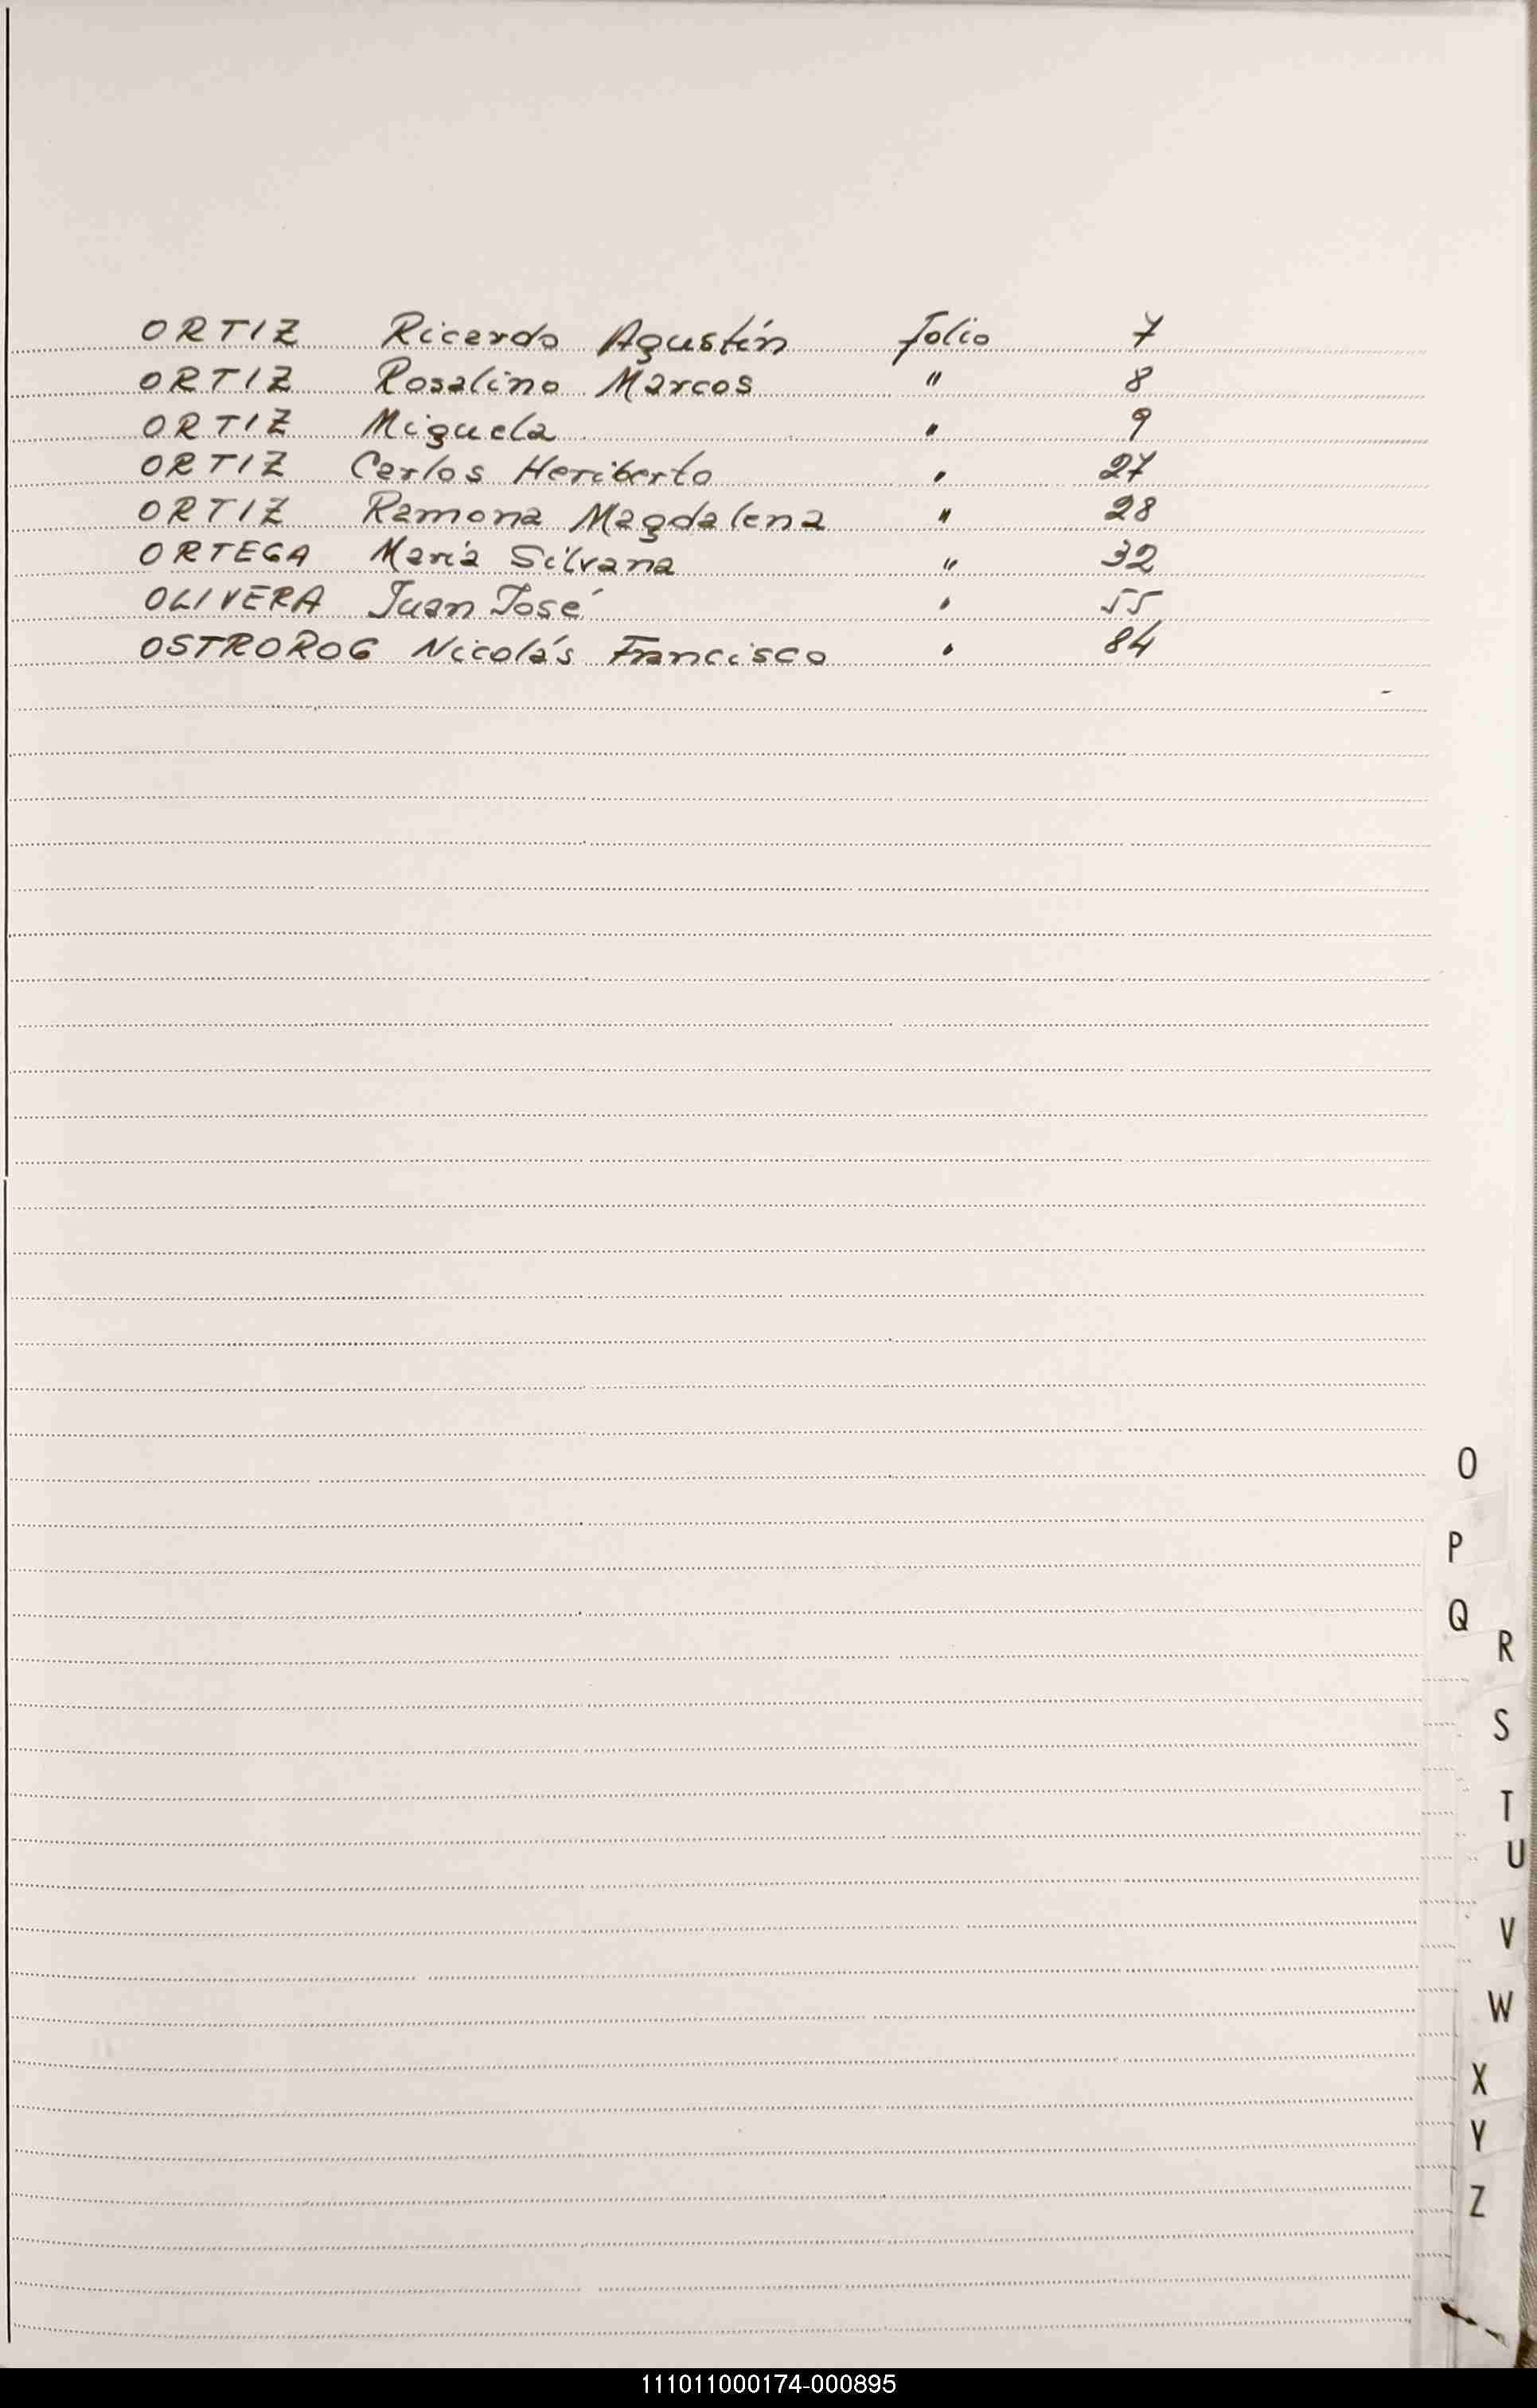 ORTIZ Ricardo Agustín folio 7
ORTIZ Rosalino Marcos " 8
ORTIZ Miguela " 9
ORTIZ Carlos Heriberto " 27
ORTIZ Ramona Magdalena " 28
ORTEGA María Silvana " 32
OLIVERA Juan José " 55
OSTROROG Nicolás Francisco " 84
O
P
Q
R
S
T
U
V
W
X
Y
Z
111011000174-000895